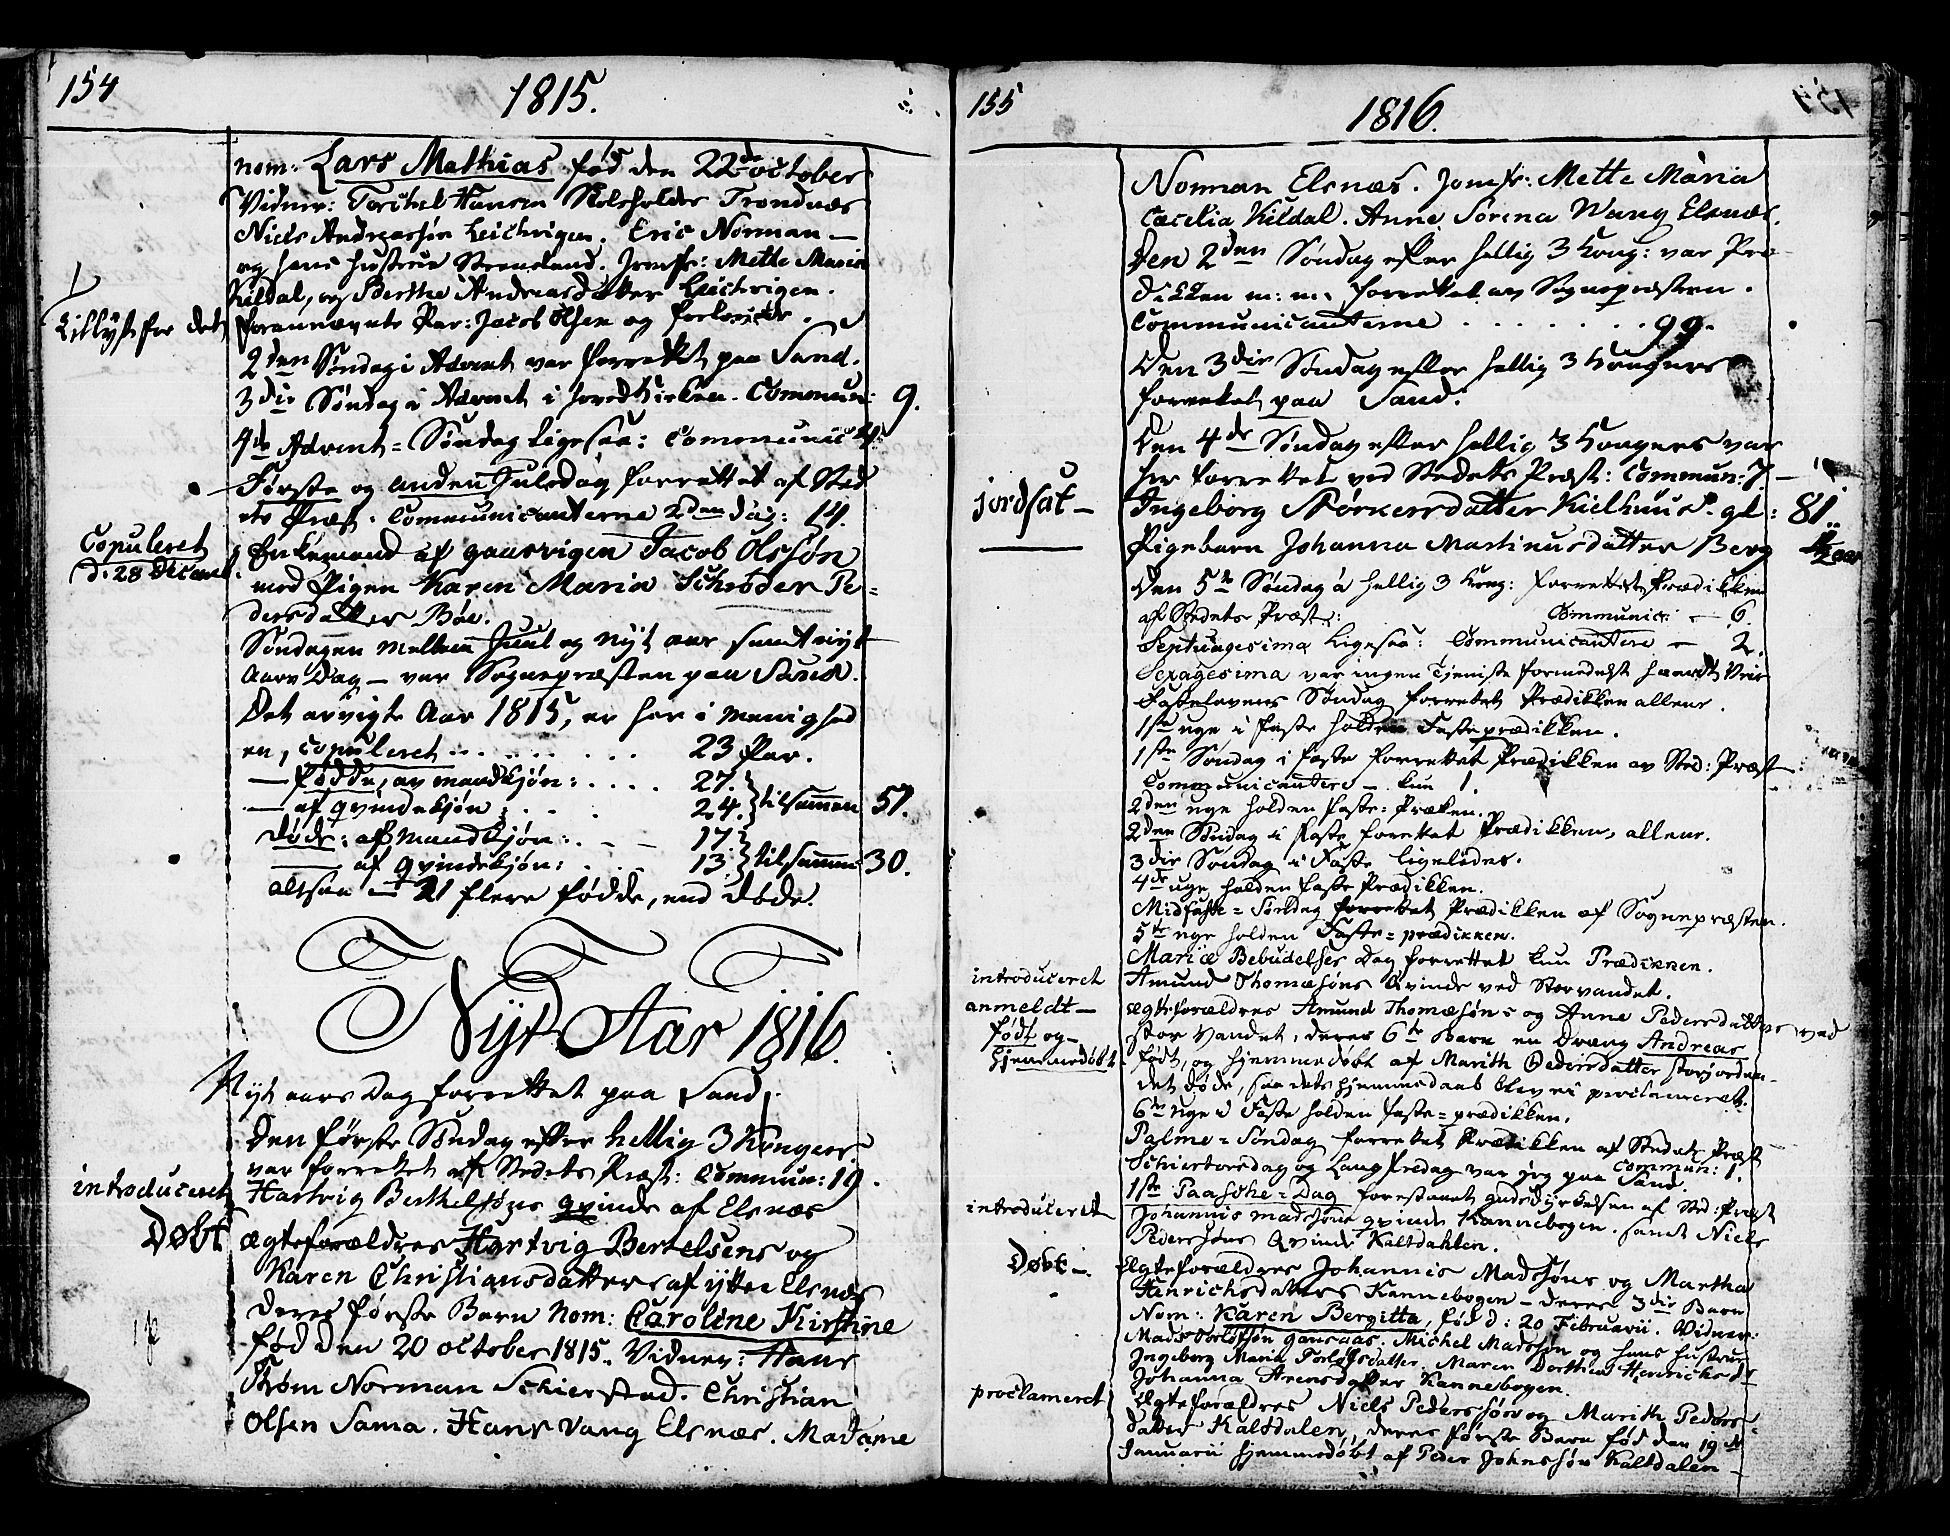 154
1815.
nom: Lars Mathias, fød den 22de october
Vidner: Torchel Hansen Trondnæs
Niels Andreassøn Leichvigen. Eric Norman —
og hans hustrue Jomfr: Mette Maria
Kildal, og Berthe Andreasdatter Leichvigen.
Tillyst for det
forannævnte Par: Jacob Olsen og
2den Søndag i Advent var forrettet paa Sand.
3die Søndag i Advent i hovedkirken. Commun: 9.
4de Advent = Søndag ligesaa: Communic 4.
Første og anden Juledag forrettet af Sted
ets Præst. Communicanterne 2den dag: 14.
Copuleret
d. 28 decemb.
Enkemand af gausvigen Jacob Olssøn
med Pigen Karen Maria Schrøder Pe=
dersdatter Bøe.
Søndagen mellem Juul og nyt aar samt nyt
Aars Dag — var Sognepræsten paa Sand.
Det avvigte Aar 1815, er her i menighed
en, copuleret . . . . . . . 23 Par.
— Fødde, av mandkjøn: . . . . 27.
— af qvindekjøn . . . 24. } tilsammen 51.
døde: af Mandkjøn: . — — 17.
— af qvindekjøn: . . . 13. } tilsammen 30.
altsaa — 21 flere fødde, end døde.
Nyt Aar 1816.
Nyt aars Dag forrettet paa Sand.
Den første Søndag efter hellig 3 Konger
var forrettet af Stedets Præst: Commun: 19.
introduceret
Hartvig Berthelsøns qvinde af Elsnæs
Døbt
ægteforældres Hartvig Bertelsens og
Karen Christiansdatters af ytter Elsnæs
deres første Barn Nom: Caroline Kirstine
fød den 20 october 1815. Vidner: Hans
Strøm Norman Schierstad. Christian
Olsen Sama. Hans Vang Elsnæs. Madame
155
1816.
Norman Elsnæs. Jomfr: Mette Maria
Cæcilia Kildal. Anne Sørena Wang Elsnæs.
Den 2den Søndag efter hellig 3 Kong: var Præ-
dikken m: m: forrettet av Sognepræsten.
Communicanterne . . . . . . . . 99.
Den 3die Søndag efter hellig 3 Kongers
forrettet paa Sand.
Den 4de Søndag efter hellig 3 Kongers var
her forrettet ved Stedets Præst: Commun: 7 —
jordsat —
Ingeborg Kielhuus. gl: 81
Pigebarn Johanna Martinusdatter Berg
Den 5te Søndag a hellig 3 Kong: forrettet Prædikken
af Stedets Præst: Communic: — 6.
Septuagesima Ligesaa: Communicantere — 2.
Sexagesima var ingen Tjeniste formedelst haardt Veir
Fastelavens Søndag forrettet Prædikken allene.
1ste uge i faste holden Fasteprædikken.
1ste Søndag i faste forrettet Prædikken av Sted: Præst
Communicantere — kun 1.
2den uge holden faste: Præken.
2den Søndag i faste forrettet Prædikken, allene.
3die Søndag i Faste ligeledes.
4de uge holden faste Prædikken.
Midfaste = Søndag forrettet Prædikken af Sognepræsten.
5te uge holden Faste = prædikken.
Mariæ Bebudelses Dag forrettet kun Prædikken.
introduceret
Amund Thomæsøns Qvinde ved Storvandet.
anmeldt —
født og —
hjemmedøbt
ægteforældres Amund Thomæsøns og Anne Pedersdatters ved
stor Vandet, deres 6te Barn en dreng Andreas
født, og hjemmedøbt af Marith Pedersdatter storjorden.
det døde, saa dets hjemmedaab blev ei proclameret.
6te uge i Faste holden faste = prædikken.
Palme = Søndag forrettet Prædikken af Stedets Præst
Commun: 1.
Schiertorsdag og Langfredag var jeg paa Sand.
1ste Paasche = Dag forestaaet gudsdyrkelsen af Sted: Præst
introduceret
Johannis Madssøns qvinde Kannebogen. samt Niels
Pederssøns Qvinde Kaltdahlen.
Døbt —.
Ægteforældres Johannis Madssøns og Martha
Henrichsdatters Kannebogen — deres 3die Barn
Nom: Karen Bergitta, fød d: 20 Februarii. Vidner:
Mads gausaas. Michel Madssøn og hans hustrue
Ingeborg Maria Maren Dorthea Henrichsd:
Johanna Arensdatter Kannebogen.
proclameret
Ægteforældres Niels Pederssøn og Marith Peders
datter Kaltdalen, deres første Barn fød den 19de
Januarii hjemmedøbt af Peder Johnssøn Kaltdalen